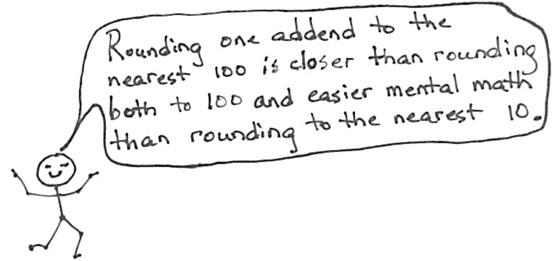 Rounding one addend to the
nearest 100 is closer than rounding
both to 100 and easier mental math
than rounding to the nearest 10.